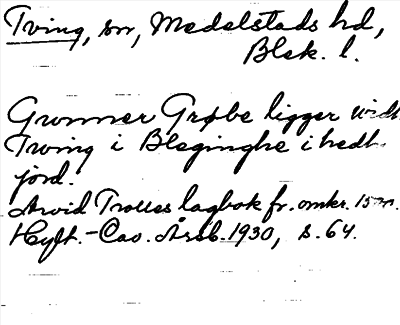 Tving, sn, Medelstads hd,
Blek. l.
Gunner Grøbe ligger vidt
Tving i Bleginghe i hedt.
jord.
Arvid Trolles lagbok fr. omkr. 15
Hylt.-Cav. Årsb. 1930, s. 64.